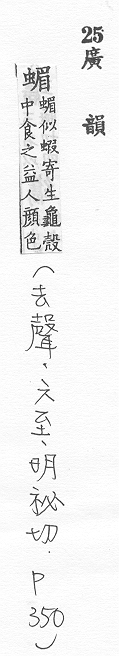 25廣韻
蝞蝞似蝦寄生龜殼
中食之益人顏色
(去聲、六至、明祕切. P350)